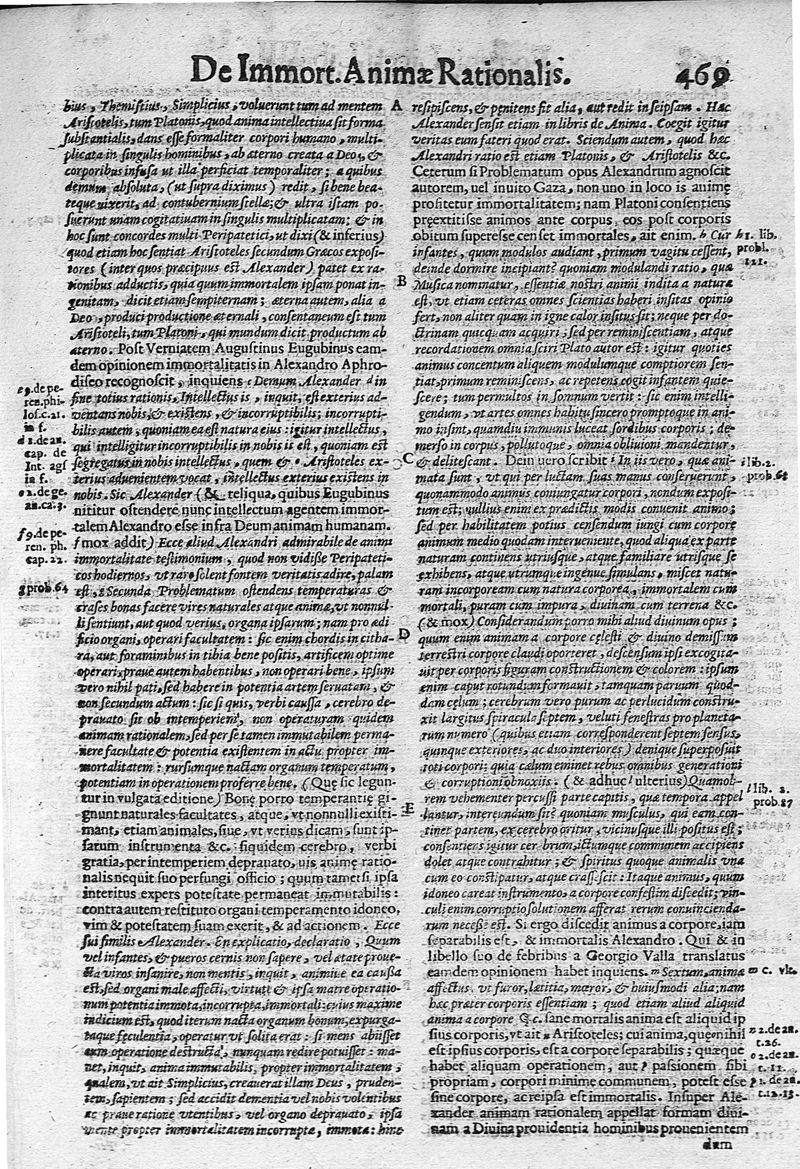 De Immort. Animæ Rationalis. 469
bius, Themistius, Simplicius, voluerunt tum ad mentem
Aristotelis, tum Platonis, quod anima intellectiua sit forma
substantialis, dans esse formaliter corpori humano, multi-
plicata in singulis hominibus, ab æterno creata a Deo, &
corporibus infusa ut illa perficiat temporaliter; a quibus
demum absoluta, (ut supra diximus) redit, si bene bea-
teque uixerit, ad contubernium stellæ; & ultra istam po-
suerunt unam cogitatiuam in singulis multiplicatam; & in
hoc sunt concordes multi Peripatetici, ut dixi (& inferius)
quod etiam hoc sentiat Aristoteles secundum Græcos exposi-
tores (inter quos præcipuus est Alexander) patet ex ra-
tionibus adductis, quia quum immortalem ipsam ponat in-
genitam, dicit etiam sempiternam; æterna autem, alia a
Deo, produci productione æternali, consentaneum est tum
Aristoteli, tum Platoni, qui mundum dicit productum ab
æterno. Post Verniatem Augustinus Eugubinus eam-
dem opinionem immortalitatis in Alexandro Aphro-
diseo recognoscit, inquiens Demum Alexander d in
fine totius rationis, Intellectus is, inquit, est exterius ad-
uentans nobis, & existens, & incorruptibilis; incorrupti-
bilis autem, quoniam ea est natura eius: igitur intellectus,
qui intelligitur incorruptibilis in nobis is est, quoniam est
segregatus in nobis intellectus, quem & e Aristoteles ex-
terius aduenientem vocat, intellectus exterius existens in
nobis. Sic Alexander (& reliqua, quibus Eugubinus
nititur ostendere nunc intellectum agentem immor-
talem Alexandro esse infra Deum animam humanam.
f mox addit) Ecce aliud Alexandri admirabile de animi
immortalitate testimonium, quod non vidisse Peripateti-
cos hodiernos, ut raro solent fontem veritatis adire, palam
est, g Secunda Problematum ostendens temperaturas &
crases bonas facere vires naturales atque animæ, vt nonnul-
li sentiunt, aut quod verius, organa ipsarum; nam pro ædi-
ficio organi, operari facultatem: sic enim chordis in citha-
ra, aut foraminibus in tibia bene positis, artificem optime
operari, praue autem habentibus, non operari bene, ipsum
vero nihil pati, sed habere in potentia artem seruatam, &
non secundum actum: sic si quis, verbi caussa, cerebro de-
prauato sit ob intemperiem, non operaturam quidem
animam rationalem, sed per se tamen immutabilem perma-
nere facultate & potentia existentem in actu propter im-
mortalitatem: rursumque nactam organum temperatum,
potentiam in operationem proferre bene. (Que sic legun-
tur in vulgata editione) Bonę porro temperantię gi-
gnunt naturales facultates, atque, vt nonnulli existi-
mant, etiam animales, siue, vt verius dicam, sunt ip-
sarum instrumenta &c. siquidem cerebro, verbi
gratia, per intemperiem deprauato, uis animę ratio-
nalis nequit suo perfungi officio; quum tametsi ipsa
interitus expers potestate permaneat immutabilis:
contra autem restituto organi temperamento idoneo,
vim & potestatem suam exerit, & ad actionem. Ecce
sui similis Alexander. En explicatio, declaratio, Quum
vel infantes, & pueros cernis non sapere, vel ætate proue-
cta viros insanire, non mentis, inquit, animiue ea caussa
est, sed organi male affecti, virtute & ipsa matre operatio-
num potentia immota, incorrupta, immortali: cuius maxime
indicium est, quod iterum nacta organum bonum, expurga-
taque feculentia, operatur vt solita erat: si mens abiisset
cum operatione destructa, nunquam redire potuisset: ma-
net, inquit, anima immutabilis, propter immortalitatem,
qualem, vt ait Simplicius, creauerat illam Deus, pruden-
tem, sapientem; sed accidit dementia vel nobis volentibus
ac praue ratione vtentibus, vel organo deprauato, ipsa
mente propter immortalitatem incorrupta, immota: hinc
c 9. de pe-
ren. phi-
los. c. 21.
in f.
d 1. de an.
cap. de
Int. ags
in f.
e 2. de ge.
an. ca. 3.
f 9. de pe-
ren. ph.
cap. 22.
g prob. 64
A
B
C
D
E
resipiscens, & penitens fit alia, aut redit in seipsam. Hæc
Alexander sensit etiam in libris de Anima. Coegit igitur
veritas eum fateri quod erat. Sciendum autem, quod hæc
Alexandri ratio est etiam Platonis, & Aristotelis &c.
Ceterum si Problematum opus Alexandrum agnoscit
autorem, uel inuito Gaza, non uno in loco is animę
profitetur immortalitatem; nam Platoni consentiens
pręextitisse animos ante corpus, eos post corporis
obitum superesse censet immortales, ait enim. h Cur
infantes, quum modulos audiant, primum vagitu cessent,
deinde dormire incipiant? quoniam modulandi ratio, quæ
Musica nominatur, essentiæ nostri animi indita a natura
est, vt etiam ceteras omnes scientias haberi insitas opinio
fert, non aliter quam in igne calor insitus sit; neque per do-
ctrinam quicquam acquiri; sed per reminiscentiam, atque
recordationem omnia sciri Plato autor est: igitur quoties
animus concentum aliquem modulumque comptiorem sen-
tiat, primum reminiscens, ac repetens cogit infantem quie-
scere; tum permultos in somnum vertit: sic enim intelli-
gendum, vt artes omnes habitu sincero promptoque in ani-
mo insint, quamdiu immunis luceat sordibus corporis; de-
merso in corpus, pollutoque, omnia obliuioni mandentur,
& delitescant. Dein uero scribit i In iis vero, quæ ani-
mata sunt, vt qui per luctam suas manus conseruerunt,
quonammodo animus coniungatur corpori, nondum exposi-
tum est; nullius enim ex prædictis modis conuenit animo;
sed per habilitatem potius censendum iungi cum corpore
animum medio quodam interueniente, quod aliqua ex parte
naturam continens utriusque, atque familiare utrisque se
exhibens, atque utrumque ingenue simulans, miscet natu-
ram incorpoream cum natura corporea, immortalem cum
mortali, puram cum impura, diuinam cum terrena &c.
(& mox) Considerandum porro mihi aliud diuinum opus;
quum enim animam a corpore cælesti & diuino demissam
terrestri corpore claudi oporteret, descensum ipsi excogita-
uit per corporis figuram constructionem & colorem: ipsum
enim caput rotundum formauit, tamquam paruum quod-
dam cælum; cerebrum vero purum ac perlucidum constru-
xit largitus spiracula septem, veluti fenestras pro planeta-
rum numero (quibus etiam corresponderent septem sensus,
quinque exteriores, ac duo interiores) denique superposuit
toti corpori; quia cælum eminet rebus omnibus generationi
& corruptioni obnoxiis. (& adhuc l ulterius) Quamob-
rem vehementer percussi parte capitis, quæ tempora appel
lantur, intereundum sit? quoniam musculus, qui eam con-
tinet partem, ex cerebro oritur, vicinusque illi positus est;
consentiens igitur cerebrum, ictumque communem accipiens
dolet atque contrahitur; & spiritus quoque animalis vna
cum eo constipatur, atque crassescit: Itaque animus, quum
idoneo careat instrumento, a corpore confestim discedit; vin-
culi enim corruptio solutionem afferat rerum conuincienda-
rum necesse est. Si ergo discedit animus a corpore, iam
separabilis est, & immortalis Alexandro. Qui & in
libello suo de febribus a Georgio Valla translatus
eamdem opinionem habet inquiens. m Sextum, animæ
affectus vt furor, lætitia, mœror, & huiusmodi alia; nam
hæc præter corporis essentiam; quod etiam aliud aliquid
anima a corpore &c. sane mortalis anima est aliquid ip
sius corporis, vt ait n Aristoteles; cui anima, quæ nihil
est ipsius corporis, est a corpore separabilis; quæque
habet aliquam operationem, aut o passionem sibi
propriam, corpori minime communem, potest esse
sine corpore, ac reipsa est immortalis. Insuper Ale-
xander animam rationalem appellat formam diui-
nam a Diuina prouidentia hominibus prouenientem
dum
h 1. lib.
probl.
121.
i lib. 2.
prob. 68
l lib. 2.
prob. 87
m c. vlt.
n 2. de an.
t. 26.
o 2. de an.
t. 11.
p 1. de an.
t. 12. 13.